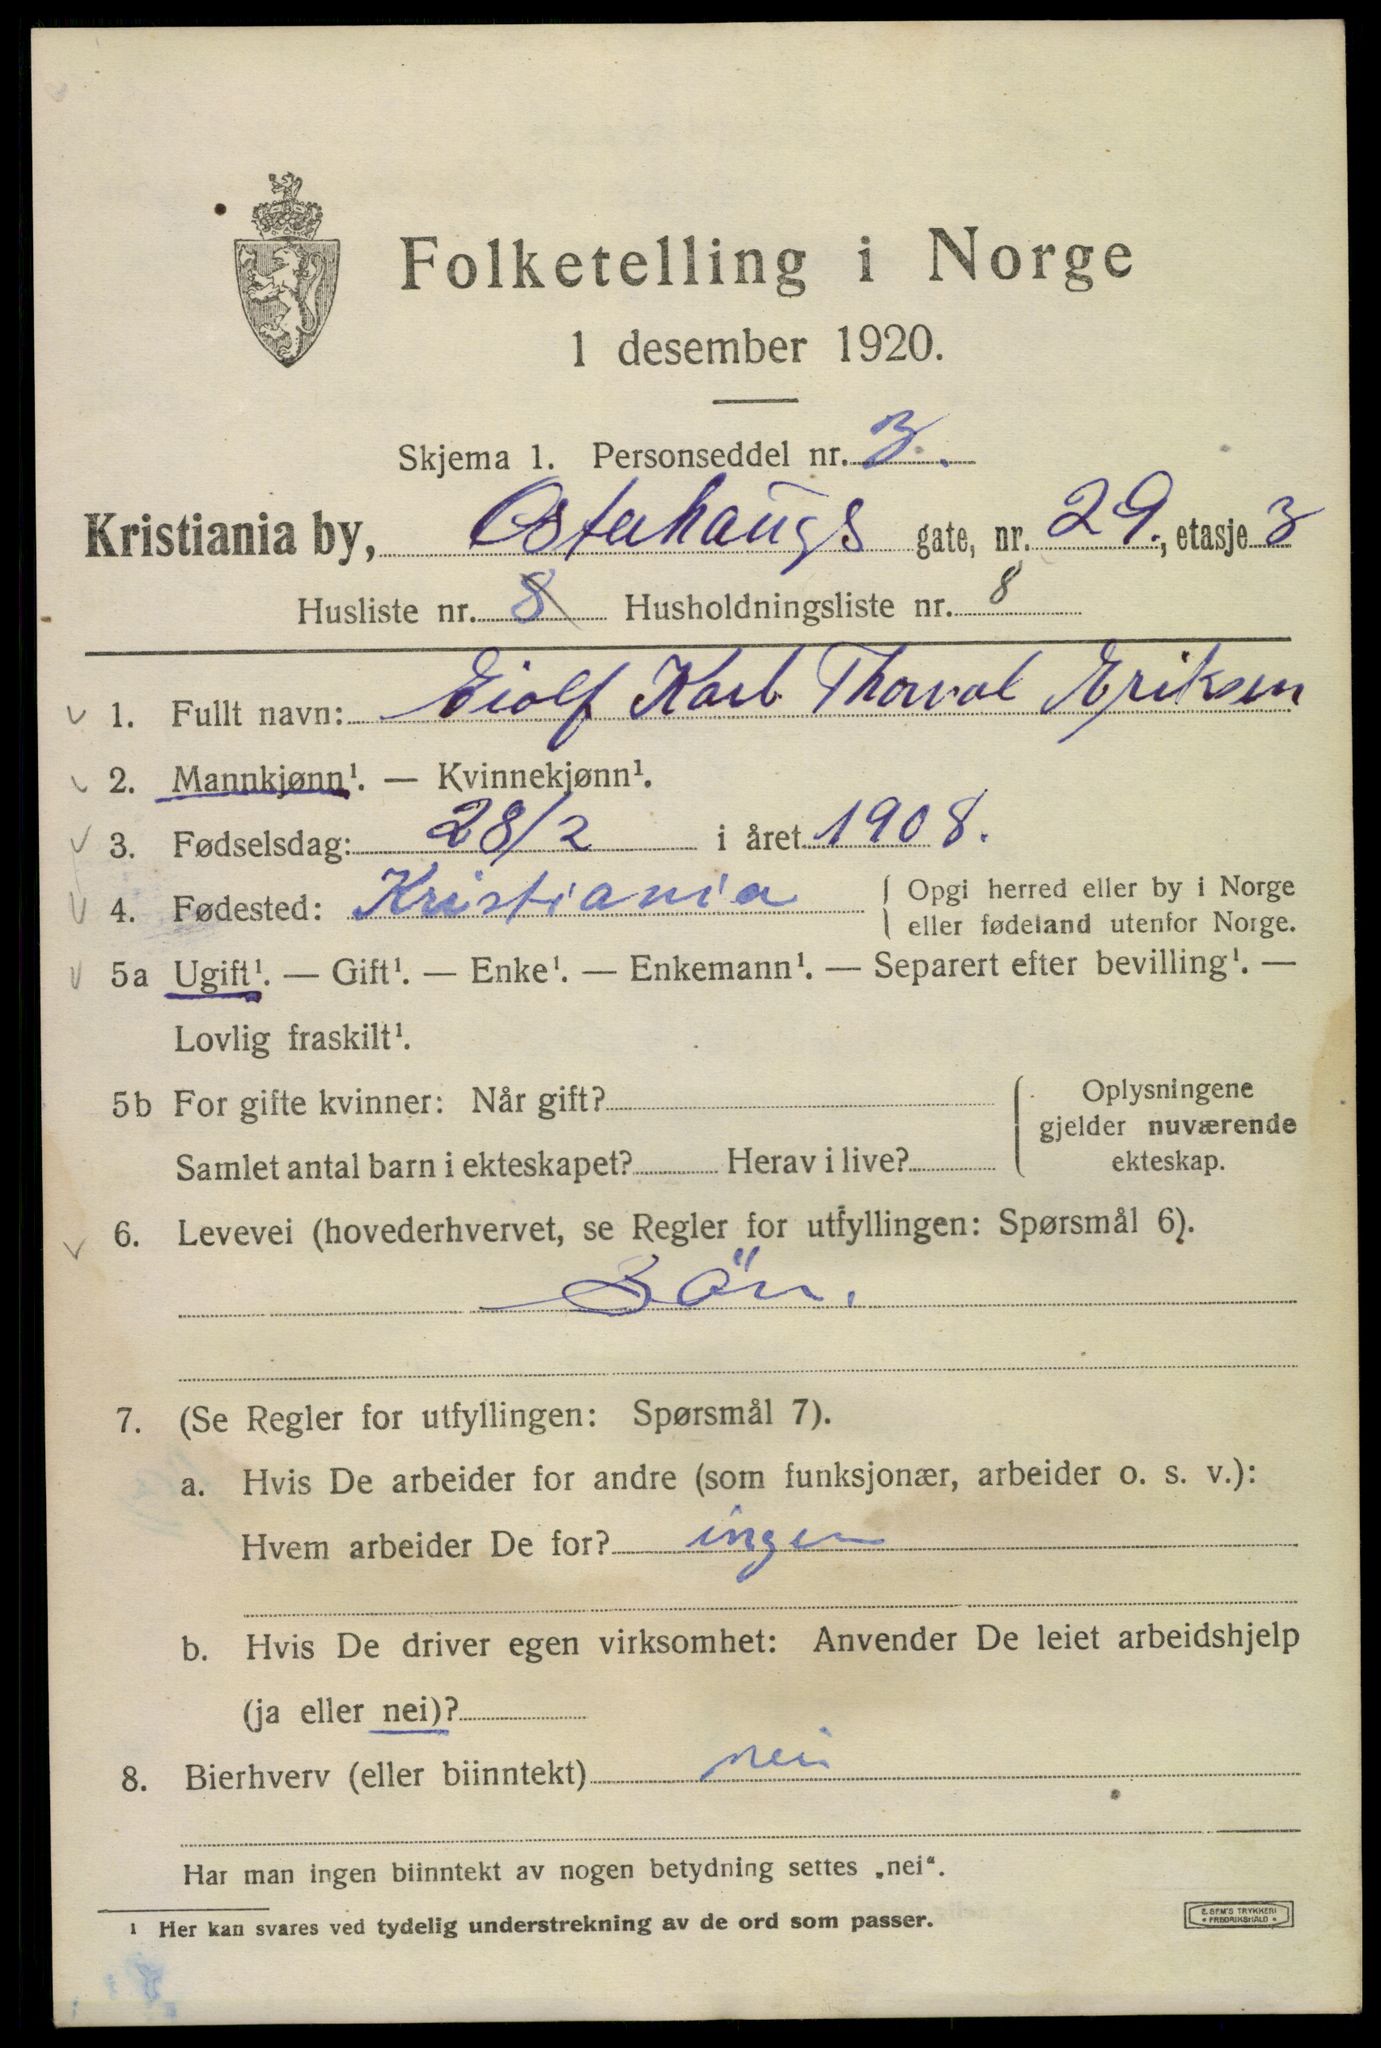 Folketelling i Norge
1 desember 1920.
Skjema 1. Personseddel nr. 3.
Kristiania by, Osterhaugs gate, nr. 29., etasje 3
Husliste nr. 8 Husholdningsliste nr. 8
1. Fullt navn: Eiolf Karl Thorval Eriksen
2. Mannkjønn¹. — Kvinnekjønn¹.
3. Fødselsdag: 28/2 i året 1908.
4. Fødested: Kristiania { Opgi herred eller by i Norge
eller fødeland utenfor Norge.
5a Ugift¹. — Gift¹. — Enke¹. — Enkemann¹. — Separert efter bevilling¹. —
Lovlig fraskilt¹.
5b For gifte kvinner: Når gift? Oplysningene
gjelder nuværende
Samlet antal barn i ekteskapet? Herav i live? ekteskap.
6. Levevei (hovederhvervet, se Regler for utfyllingen: Spørsmål 6).
Sön.
7. (Se Regler for utfyllingen: Spørsmål 7).
a. Hvis De arbeider for andre (som funksjonær, arbeider o. s. v.):
Hvem arbeider De for? ingen
b. Hvis De driver egen virksomhet: Anvender De leiet arbeidshjelp
(ja eller nei)?
8. Bierhverv (eller biinntekt) nei
Har man ingen biinntekt av nogen betydning settes „nei“.
¹ Her kan svares ved tydelig understrekning av de ord som passer.
E. SEM'S TRYKKERI
• FREDRIKSHALD •